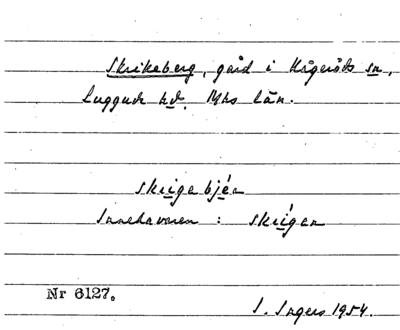 Skrikeberg, gård i Kågeröds sn,
Luggude hd. Mhs län.
skriigebjér
Innehavaren : skriígen
Nr 6127.
I. Ingers 1954.